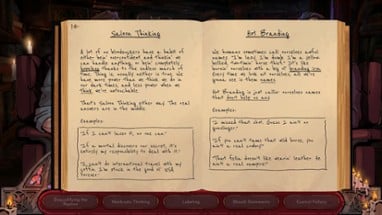 14
Saloon Thinking
A lot of us bloodsuckers have a habit of
either bein' overconfident and thinkin' we
can handle anything, or bein' completely
hopeless thanks to the endless march of
time. Thing is, usually neither is true. We
have more power than we think we do in
our dark times, and less power when we
think we're untouchable.
That's Saloon Thinking other way. The real
answers are in the middle.
Examples:
"If I can't have it, no one can!"
"If a mortal discovers our secret, it's
entirely my responsibility to deal with it."
"I can't do international travel with my
coffin. I'm stuck in the good ol' USA
forever."
Hot Branding
We humans sometimes call ourselves awful
names. "I'm lazy, I'm dumb, I'm a
horse thief." It's like
ourselves with a big ol' branding iron.
Every time we look at ourselves, all we're
gonna see is those names
Hot Branding is just callin' ourselves names
that don't help us any.
Examples:
"I missed that shot. Guess I ain't no
gunslinger."
"If you can't tame that wild horse, you
ain't a real cowboy!"
"That fella doesn't like wearin' leather? He
ain't a real vampire!"
Demystifying the
Bigwigs
Manicured Thinking
Labeling
Mental Statements
Control Fallacy